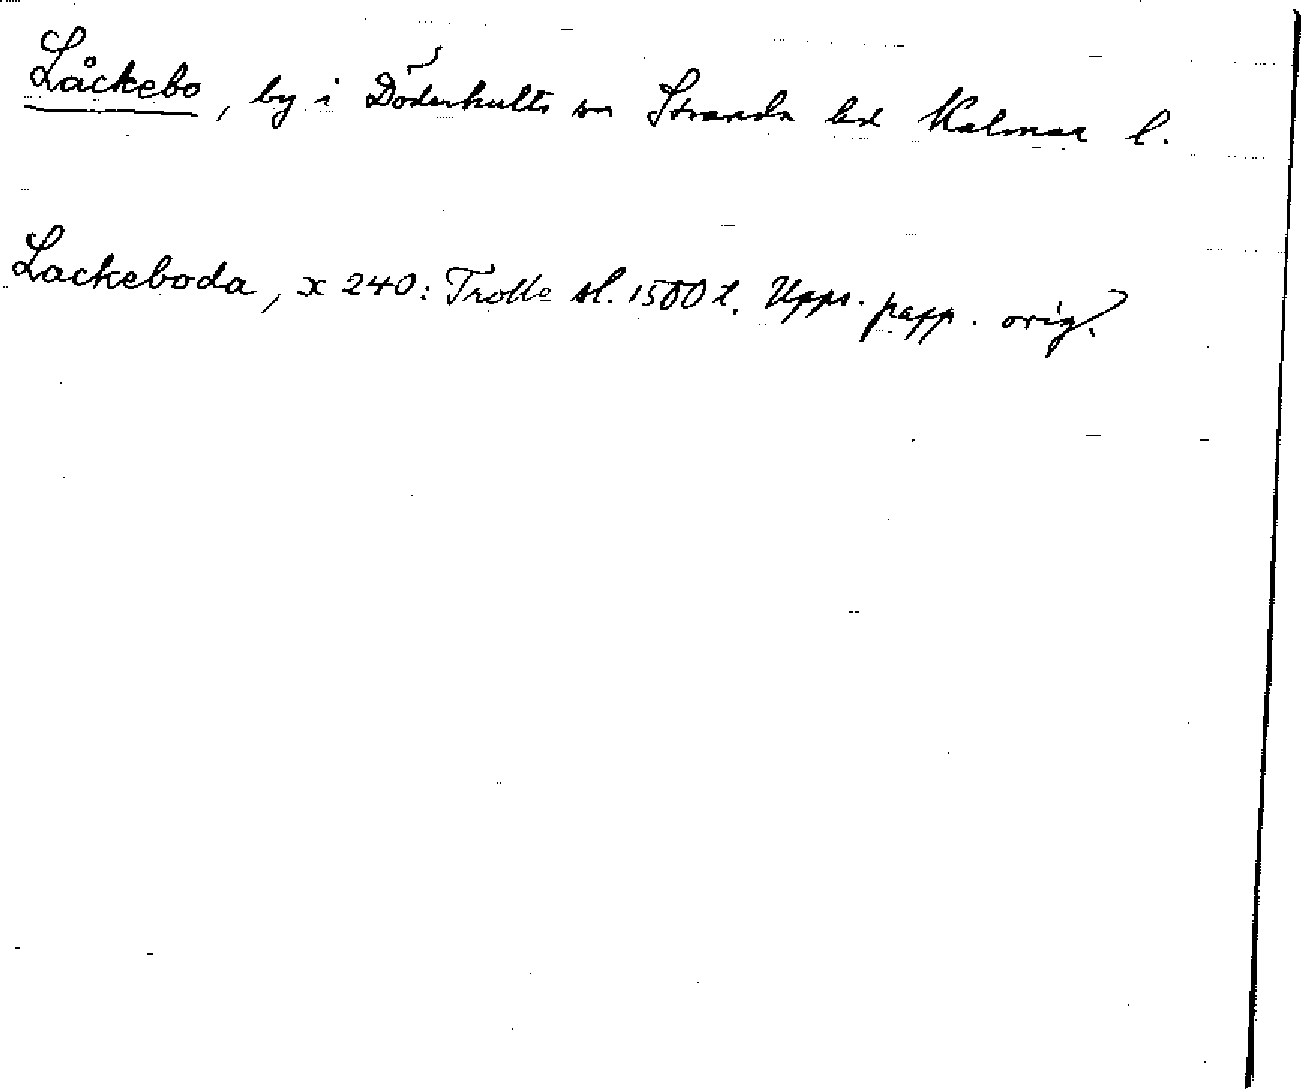 Låckebo, by i Döderhults sn Stranda hd Kalmar l.
Lackeboda, x 240: Trolle sl. 1500 t. Upps. papp. orig.